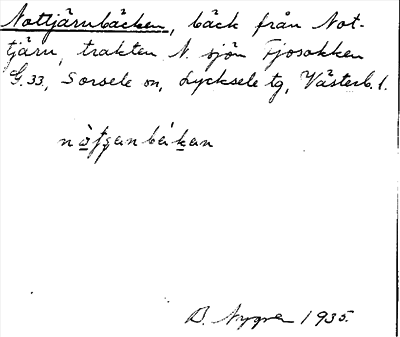 Nottjärnbäcken, bäck från Not-
tjärn, trakten N. sjön Fjosokken
G.33, Sorsele sn, Lycksele tg, Västerb. l.
B. Nygren 1935.